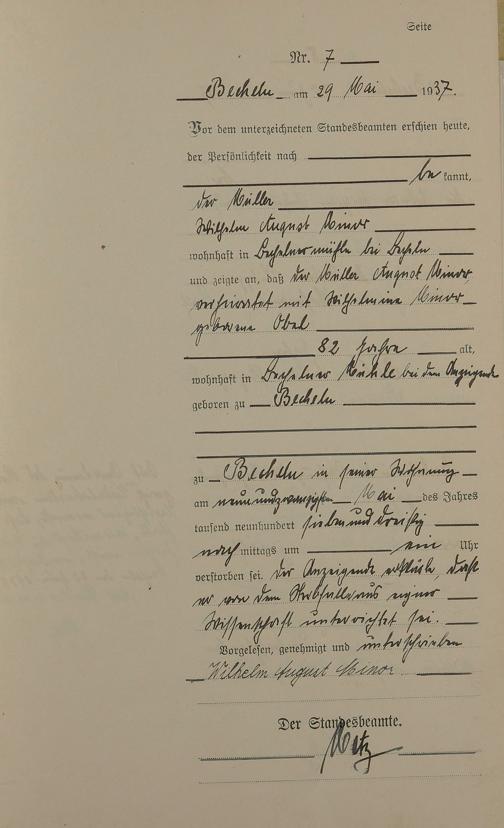 Seite
Nr. 7
Becheln am 29 Mai 1937.
Vor dem unterzeichneten Standesbeamten erschien heute,
der Persönlichkeit nach
be kannt,
der Müller
Wilhelm August Minor
wohnhaft in Bechelnermühle bei Becheln
und zeigte an, daß der Müller August Minor,
verheiratet mit Wilhelmine Minor
geborene Obel
82 Jahre alt,
wohnhaft in Bechelner Mühle bei dem Anzeigende
geboren zu Becheln
zu Becheln in seiner Wohnung
am neunundzwanzigsten Mai des Jahres
tausend neunhundert siebenunddreißig
nach mittags um ein Uhr
verstorben sei. Der Anzeigende erklärte, daß
er von dem Sterbfalle aus eigner
Wissenschaft unterrichtet sei.
Vorgelesen, genehmigt und unterschrieben
Wilhelm August Minor
Der Standesbeamte.
Metz